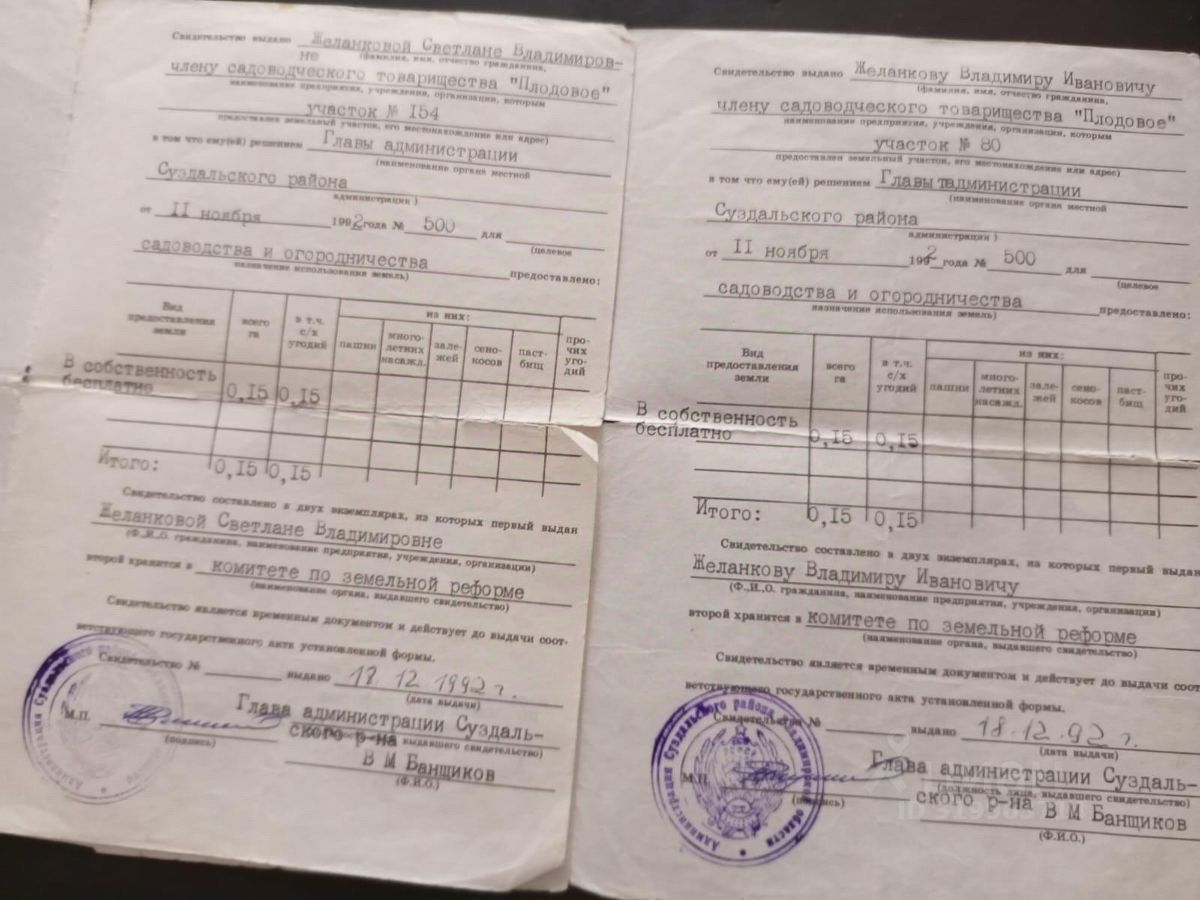 Свидетельство выдано Желанковой Светлане Владимиров-
не (фамилия, имя, отчество гражданина,
члену садоводческого товарищества "Плодовое"
наименование предприятия, учреждения, организации, которым
участок № I54
предоставлен земельный участок, его местонахождение или адрес)
в том что ему(ей) решением Главы администрации
(наименование органа местной
Суздальского района
администрации)
от II ноября 1992 года № 500 для
(целевое
садоводства и огородничества предоставлено:
назначение использования земель)
Вид предоставления земли всего га в т.ч. с/х угодий из них: пашни много-летних насажд. зале-жей сено-косов паст-бищ про-чих уго-дий
В собственность
бесплатно 0,I5 0,I5
Итого: 0,I5 0,I5
Свидетельство составлено в двух экземплярах, из которых первый выдан
Желанковой Светлане Владимировне
(Ф.,И.,О. гражданина, наименование предприятия, учреждения, организации)
второй хранится в комитете по земельной реформе
(наименование органа, выдавшего свидетельство)
Свидетельство является временным документом и действует до выдачи соот-
ветствующего государственного акта установленной формы.
Свидетельство № выдано 18.12.1992г.
(дата выдачи)
Глава администрации Суздаль-
М.П. ского р-на выдавшего свидетельство)
(подпись)
В М Банщиков
(Ф.И.О.)
Свидетельство выдано Желанкову Владимиру Ивановичу
(фамилия, имя, отчество гражданина,
члену садоводческого товарищества "Плодовое"
наименование предприятия, учреждения, организации, которым
участок № 80
предоставлен земельный участок, его местонахождение или адрес)
в том что ему(ей) решением Главы администрации
(наименование органа местной
Суздальского района
администрации)
от II ноября 1992 года № 500 для
(целевое
садоводства и огородничества предоставлено:
назначение использования земель)
Вид предоставления земли всего га в т.ч. с/х угодий из них: пашни много-летних насажд. зале-жей сено-косов паст-бищ про-чих уго-дий
В собственность
бесплатно 0,I5 0,I5
Итого: 0,I5 0,I5
Свидетельство составлено в двух экземплярах, из которых первый выдан
Желанкову Владимиру Ивановичу
(Ф.,И.,О. гражданина, наименование предприятия, учреждения, организации)
второй хранится в комитете по земельной реформе
(наименование органа, выдавшего свидетельство)
Свидетельство является временным документом и действует до выдачи соот-
ветствующего государственного акта установленной формы.
Свидетельство № выдано 18.12.92г.
(дата выдачи)
Глава администрации Суздаль-
М.П. (должность лица, выдавшего свидетельство)
(подпись) ского р-на В М Банщиков
(Ф.И.О.)
Администрация Суздальского района Владимирской области